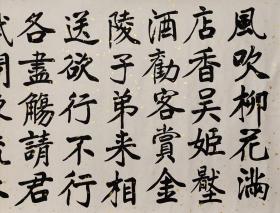 風吹柳花滿
店香吴姬壓
酒勸客賞金
陵子弟来相
送欲行不行
各盡觴請君